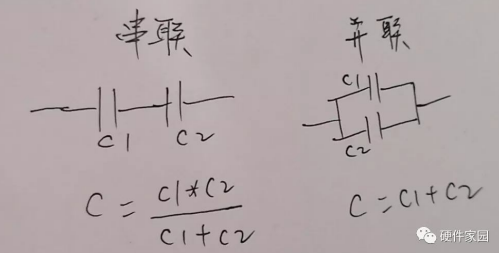 串联
并联
C1
C2
C1
C2
C = C1*C2 / C1+C2
C = C1+C2
硬件家园